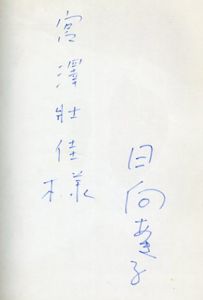 宮澤壯佳様
日向あき子